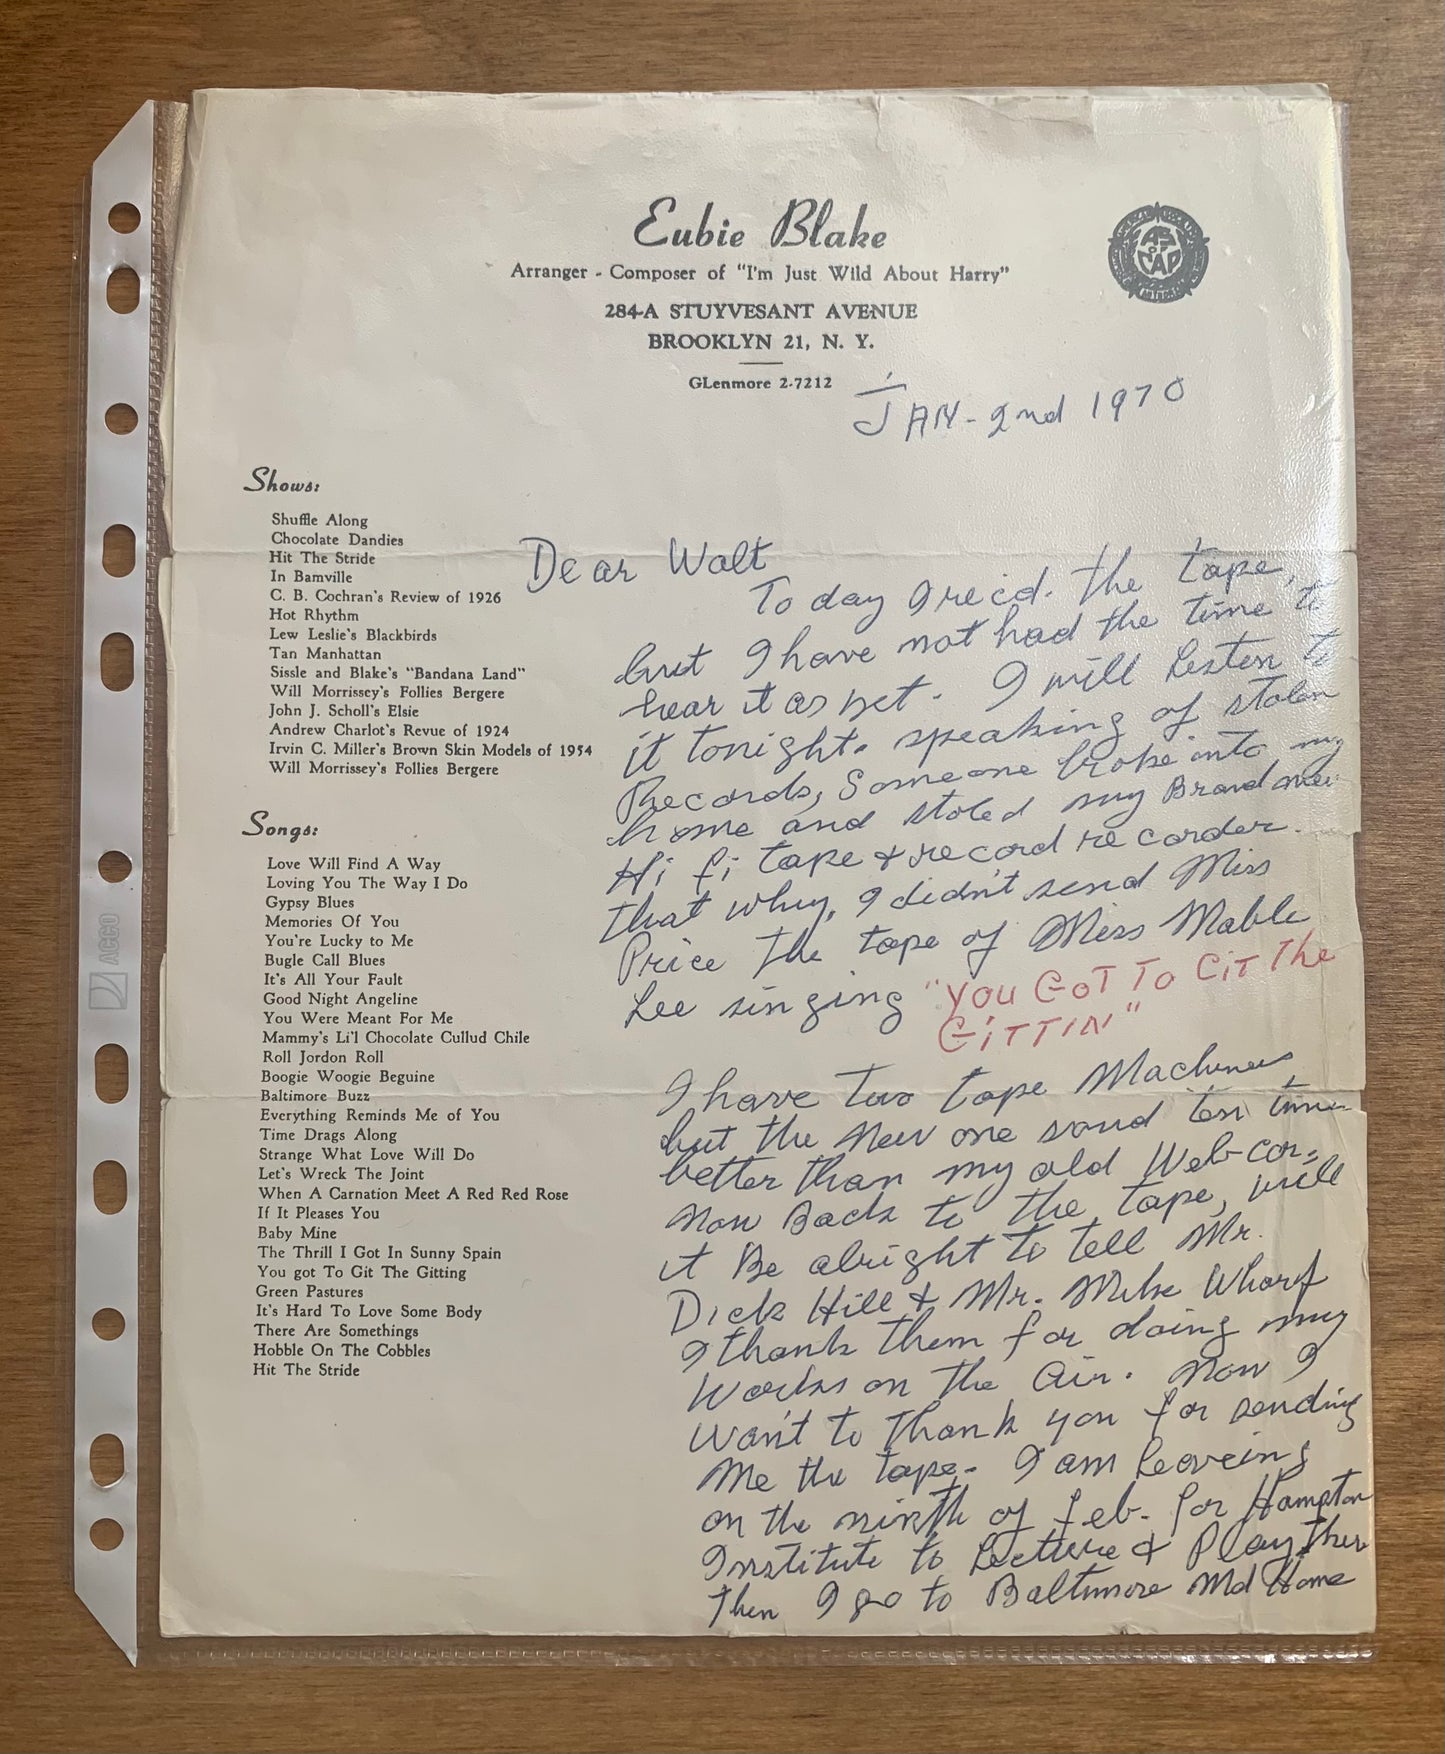 Eubie Blake
Arranger - Composer of "I'm Just Wild About Harry"
284-A STUYVESANT AVENUE
BROOKLYN 21, N. Y.
GLenmore 2-7212
AS
OF
CAP
JAN - 2nd 1970
Shows:
Shuffle Along
Chocolate Dandies
Hit The Stride
In Bamville
C. B. Cochran's Review of 1926
Hot Rhythm
Lew Leslie's Blackbirds
Tan Manhattan
Sissle and Blake's "Bandana Land"
Will Morrissey's Follies Bergere
John J. Scholl's Elsie
Andrew Charlot's Revue of 1924
Irvin C. Miller's Brown Skin Models of 1954
Will Morrissey's Follies Bergere
Songs:
Love Will Find A Way
Loving You The Way I Do
Gypsy Blues
Memories Of You
You're Lucky to Me
Bugle Call Blues
It's All Your Fault
Good Night Angeline
You Were Meant For Me
Mammy's Li'l Chocolate Cullud Chile
Roll Jordon Roll
Boogie Woogie Beguine
Baltimore Buzz
Everything Reminds Me of You
Time Drags Along
Strange What Love Will Do
Let's Wreck The Joint
When A Carnation Meet A Red Red Rose
If It Pleases You
Baby Mine
The Thrill I Got In Sunny Spain
You got To Git The Gitting
Green Pastures
It's Hard To Love Some Body
There Are Somethings
Hobble On The Cobbles
Hit The Stride
Dear Walt
Today I recd. the tape,
but I have not had the time to
hear it as yet. I will Listen to
it tonight. speaking of stolen
Records, Someone broke into my
home and stoled my Brand new
Hi fi tape & record recorder.
that why, I didn't send Miss
Price the tape of Miss Mable
Lee singing "YOU GOT TO GIT The
GITTIN"
I have two tape Machines,
but the New one sound ten times
better than my old Web-cor.
Now Back to the tape, will
it Be alright to tell Mr.
Dick Hill & Mr. Mike Wharf
I thank them for doing my
Works on the Air. Now I
Want to thank you for sending
Me the tape. I am Leaveing
on the ninth of Feb. for Hampton
Institute to Lecture & Play. then
Then I go to Baltimore Md Home
ACCO